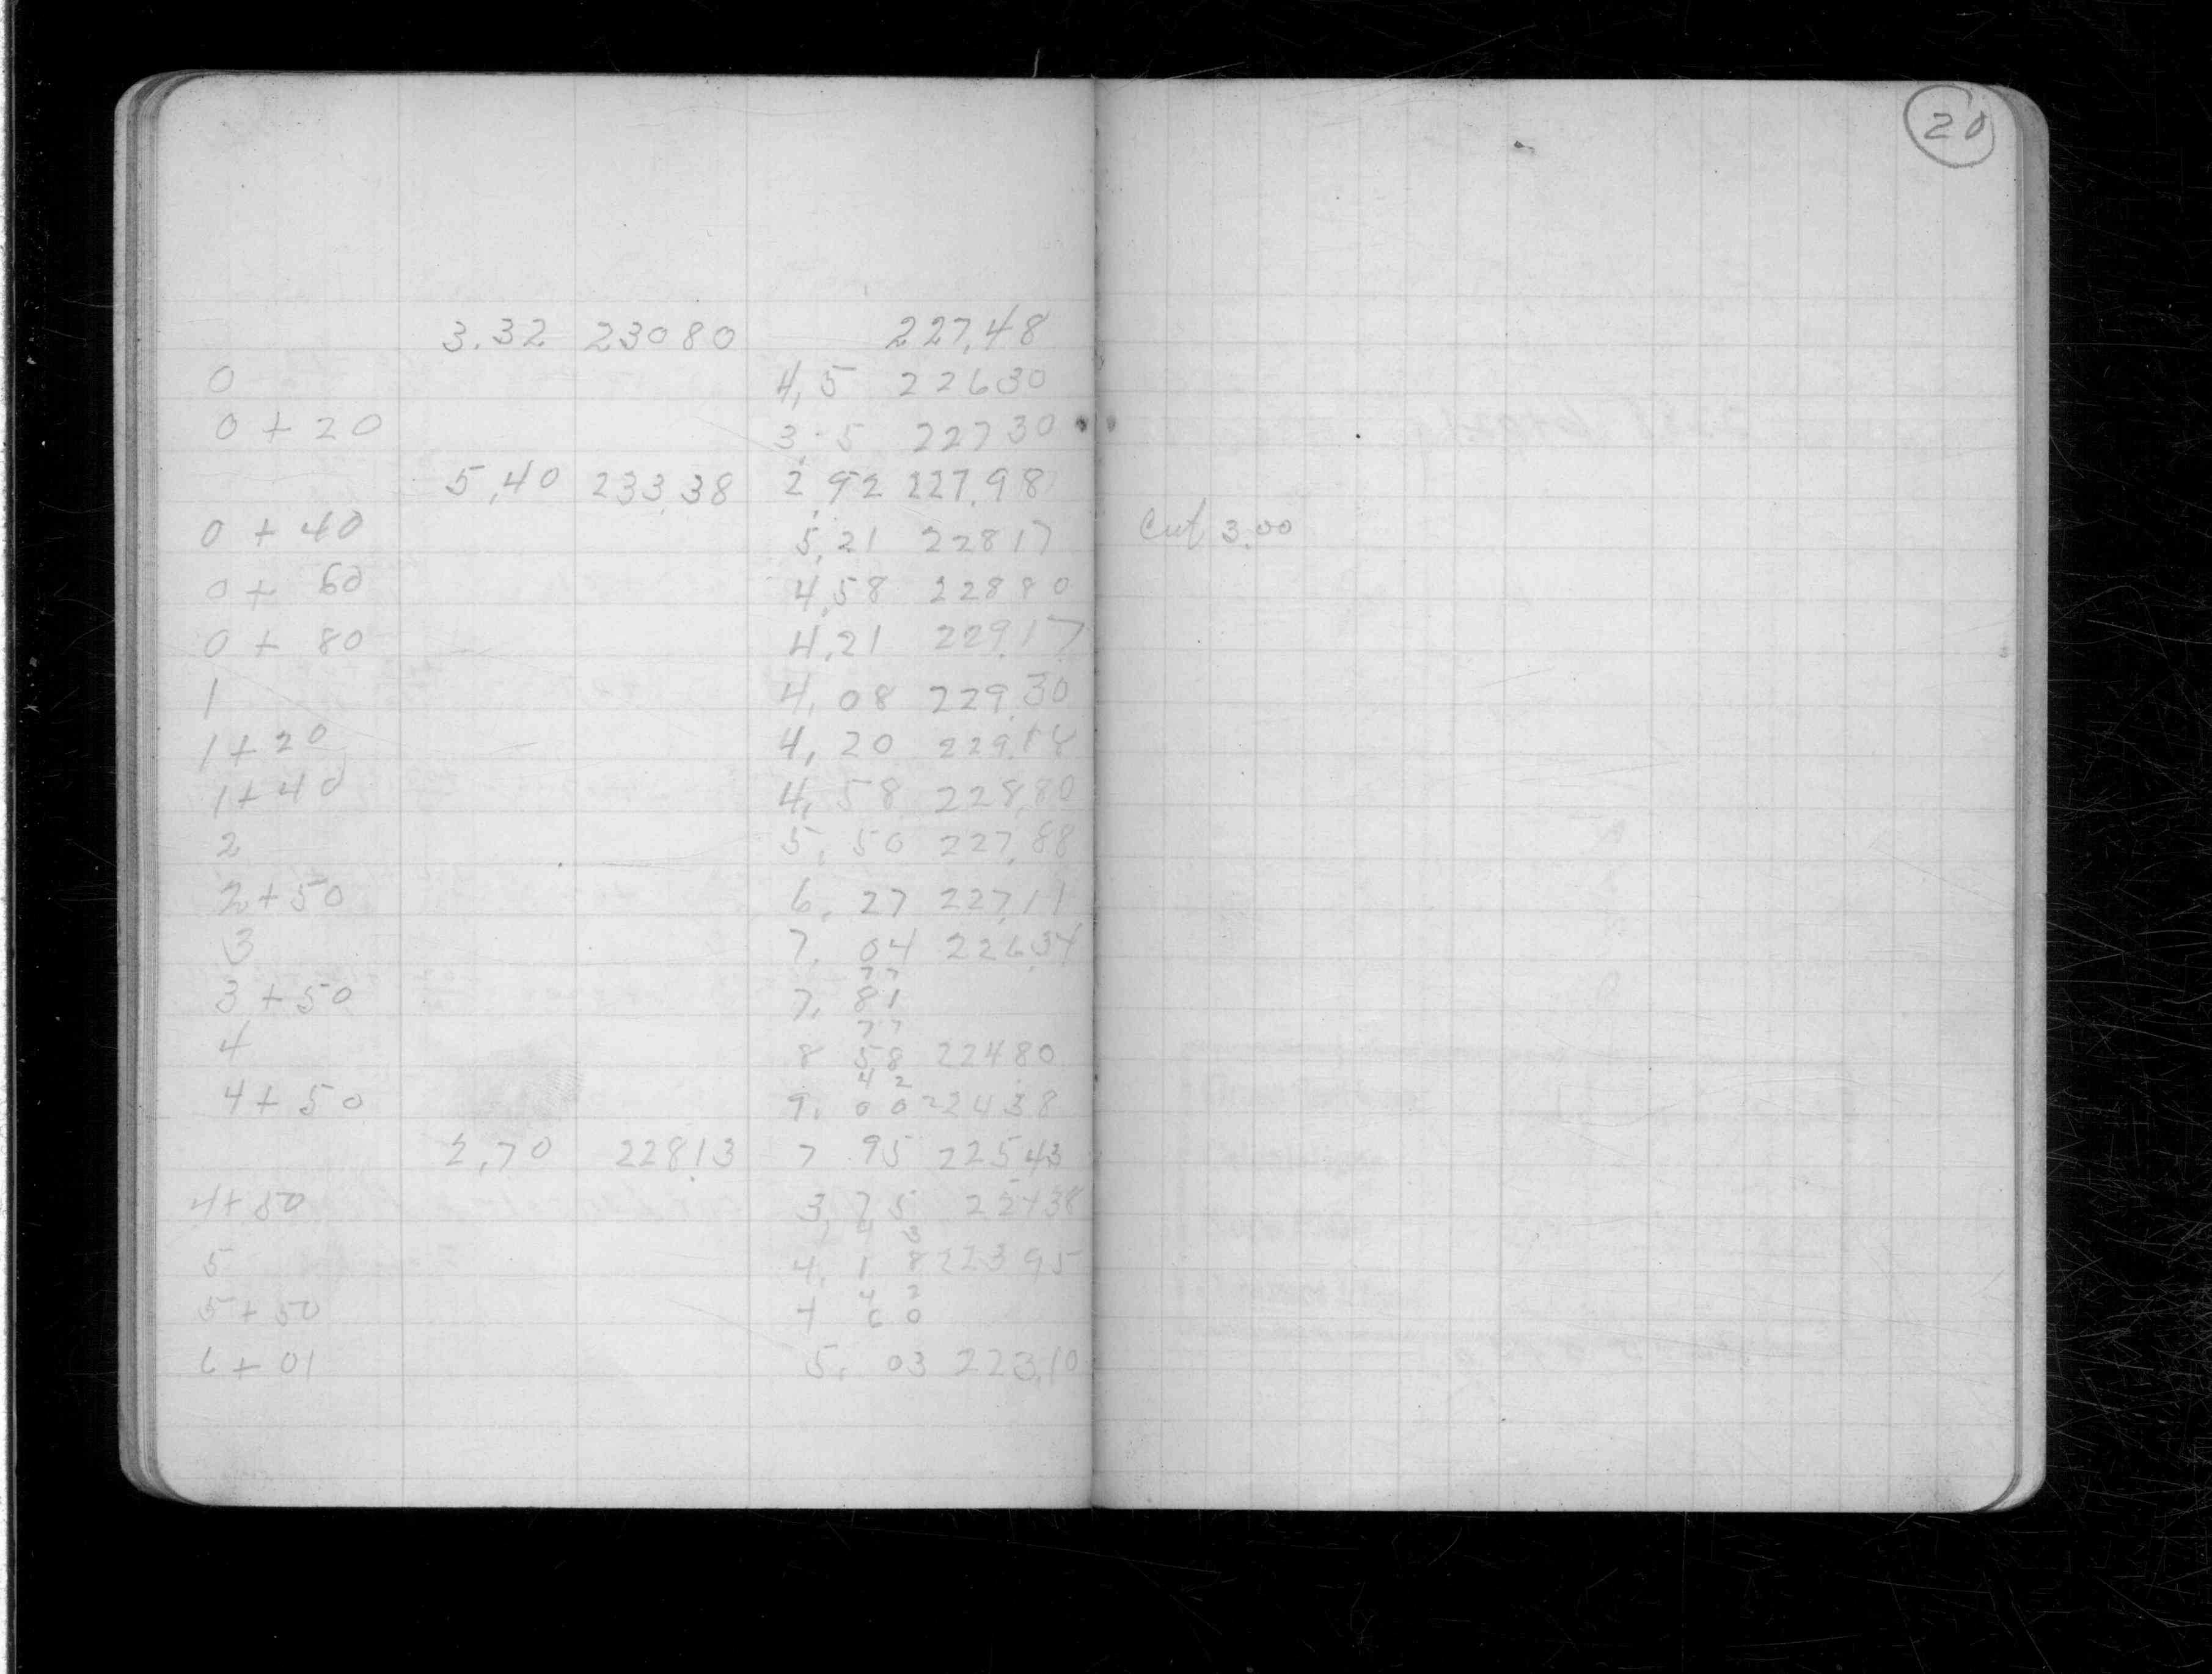 20
3.32 23080 227.48
0 4,5 22630
0 + 20 3.5 22730
5,40 233.38 2.92 227.98
0 + 40 5,21 22817 Cut 3.00
0 + 60 4,58 22880
0 + 80 4.21 229.17
1 4,08 229.30
1 + 20 4,20 229.18
1 + 40 4,58 228.80
2 5,50 227,88
2 + 50 6.27 227.11
3 7.04 226.34
77
3 + 50 7.81
77
4 8 58 22480
42
4 + 50 9.00 22438
2,70 228.13 7 95 22543
4 + 50 3,75 22438
43
5 4.18 22395
42
5 + 50 4 60
6 + 01 5.03 223.10